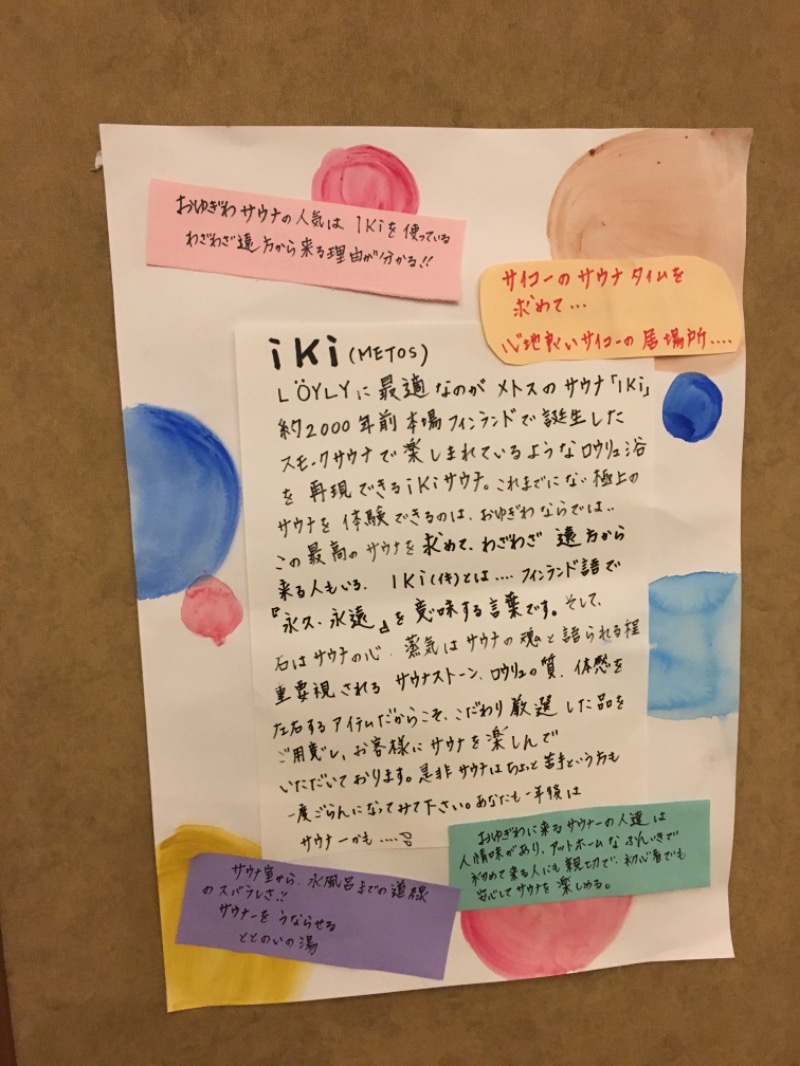 おゆぎわサウナの人気は IKiを使っている
わざわざ遠方から来る理由が分かる!!
サイコーのサウナタイムを
求めて…
心地良いサイコーの居場所….
iKi (METOS)
LÖYLYに最適なのがメトスのサウナ「IKi」
約2000年前本場フィンランドで誕生した
スモークサウナで楽しまれているようなロウリュ浴
を再現できるiKiサウナ。これまでにない極上の
サウナを体験できるのは、おゆぎわならでは..
この最高のサウナを求めて、わざわざ遠方から
来る人もいる. IKi(イキ)とは….フィンランド語で
『永久、永遠』を意味する言葉です。そして、
石はサウナの心、蒸気はサウナの魂と語られる程
重要視されるサウナストーン、ロウリュの質、体感を
左右するアイテムだからこそ、こだわり厳選した品を
ご用意し、お客様にサウナを楽しんで
いただいております。是非サウナはちょっと苦手という方も
一度ごらんになってみて下さい。あなたも一年後は
サウナーかも….
おゆぎわに来るサウナーの人達は
人情味があり、アットホームなふんいきで
初めて来る人にも親切で、初心者でも
安心してサウナを楽しめる。
サウナ室から、水風呂までの導線
のスバラしさ!!
サウナーをうならせる
ととのいの湯